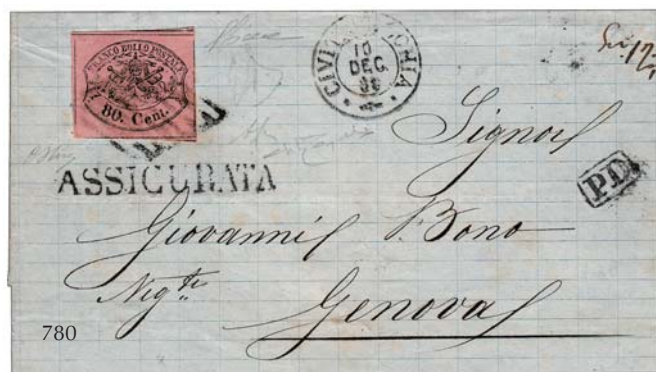 FRANCO BOLLO POSTALE
80. Cent.
10
DEC.
ASSICURATA
P.D.
Signor
Giovanni Bono
Negte
Genova
780